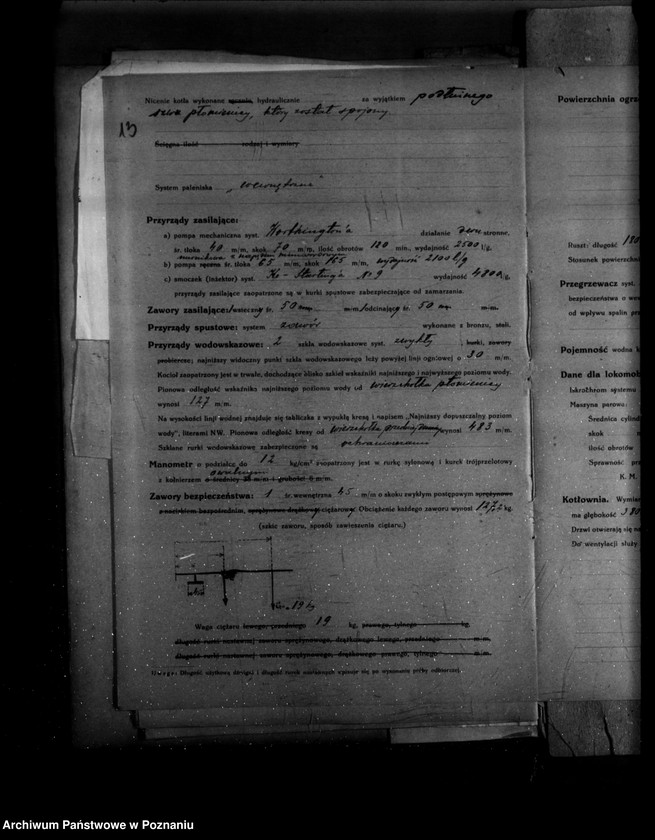 13
Nicenie kotła wykonane ręcznie, hydraulicznie za wyjątkiem podłużnego
szwa płomienicy, który został spojony.
Ścięgna ilość rodzaj i wymiary
System paleniska „wewnętrzne"
Przyrządy zasilające:
a) pompa mechaniczna syst. Worthington'a działanie dwu stronne,
śr. tłoka 40 m/m, skok 70 m/m, ilość obrotów 180 min., wydajność 2500 l/g,
b) pompa ręczna śr. tłoka 65 m/m, skok 165 m/m, wydajność 2100 l/g
c) smoczek (inżektor) syst. Re-Starting'a Nº 9 wydajność 4800 l/g,
przyrządy zasilające zaopatrzone są w kurki spustowe zabezpieczające od zamarzania.
Zawory zasilające: /zwrotny śr. 50 m/m /odcinający śr. 50 m/m
Przyrządy spustowe: system zawór wykonane z bronzu, stali.
Przyrządy wodowskazowe: 2 szkła wodowskazowe syst. zwykły, kurki, zawory
probiercze; najniższy widoczny punkt szkła wodowskazowego leży powyżej linji ogniowej o 30 m/m.
Kocioł zaopatrzony jest w trwałe, dochodzące blisko szkieł wskaźniki najniższego i najwyższego poziomu wody.
Pionowa odległość wskaźnika najniższego poziomu wody od wierzchołka płomienicy
wynosi 127 m/m.
Na wysokości linji wodnej znajduje się tabliczka z wypukłą kresą i napisem „Najniższy dopuszczalny poziom
wody", literami NW. Pionowa odległość kresy od wierzchołka wynosi 483 m/m.
Szklane rurki wodowskazowe zabezpieczone są ochraniaczami
Manometr o podziałce do 12 kg/cm² zaopatrzony jest w rurkę syfonową i kurek trójprzelotowy
z kołnierzem owalnym o średnicy m/m i grubości 6 m/m.
Zawory bezpieczeństwa: 1 śr. wewnętrzna 45 m/m o skoku zwykłym postępowym sprężynowe
z naciskiem bezpośrednim, sprężynowe drążkowy ciężarowy. Obciążenie każdego zaworu wynosi 127,2 kg.
(szkic zaworu, sposób zawieszenia ciężaru.)
19 kg
Waga ciężaru lewego, przedniego 19 kg, prawego, tylnego kg,
długość rurki nastawnej zaworu sprężynowego, drążkowego lewego, przedniego m/m
długość rurki nastawnej zaworu sprężynowego, drążkowego prawego, tylnego m/m
Uwaga: Długość użytkową dźwigni i długość rurek nastawnych wpisuje się po wykonaniu próby odbiorczej.
Powierzchnia ogrz
Ruszt: długość 180
Stosunek powierzchni
Przegrzewacz syst.
bezpieczeństwa o wew
od wpływu spalin prz
Pojemność wodna k
Dane dla lokomob
Lokochrom systemu
Maszyna parowa:
Średnica cylind
skok
ilość obrotów
Sprawność prz
K. M.
Kotłownia. Wymiar
ma głębokość 380
Drzwi otwierają się na
Do wentylacji służy
Archiwum Państwowe w Poznaniu